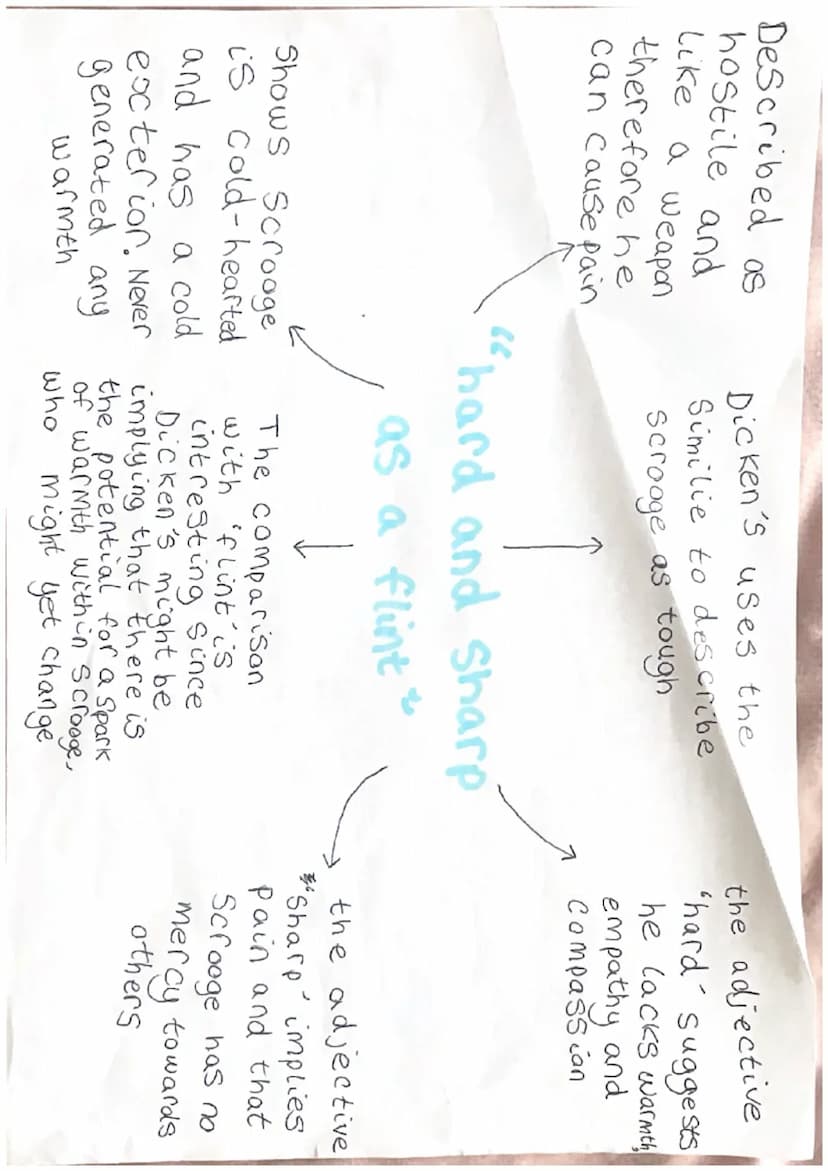 Described as
hostile and
like a weapon
therefore he
can cause pain
Dicken's uses the
Similie to describe
scrooge as tough
the adjective
'hard' suggests
he lacks warmth,
empathy and
compassion
"hard and sharp
as a flint"
Shows scrooge
is cold-hearted
and has a cold
exterior. Never
generated any
warmth
The comparison
with 'flint' is
intresting since
Dicken's might be
implying that there is
the potential for a spark
of warmth within scrooge,
who might yet change
the adjective
"Sharp' implies
Pain and that
Scrooge has no
mercy towards
others